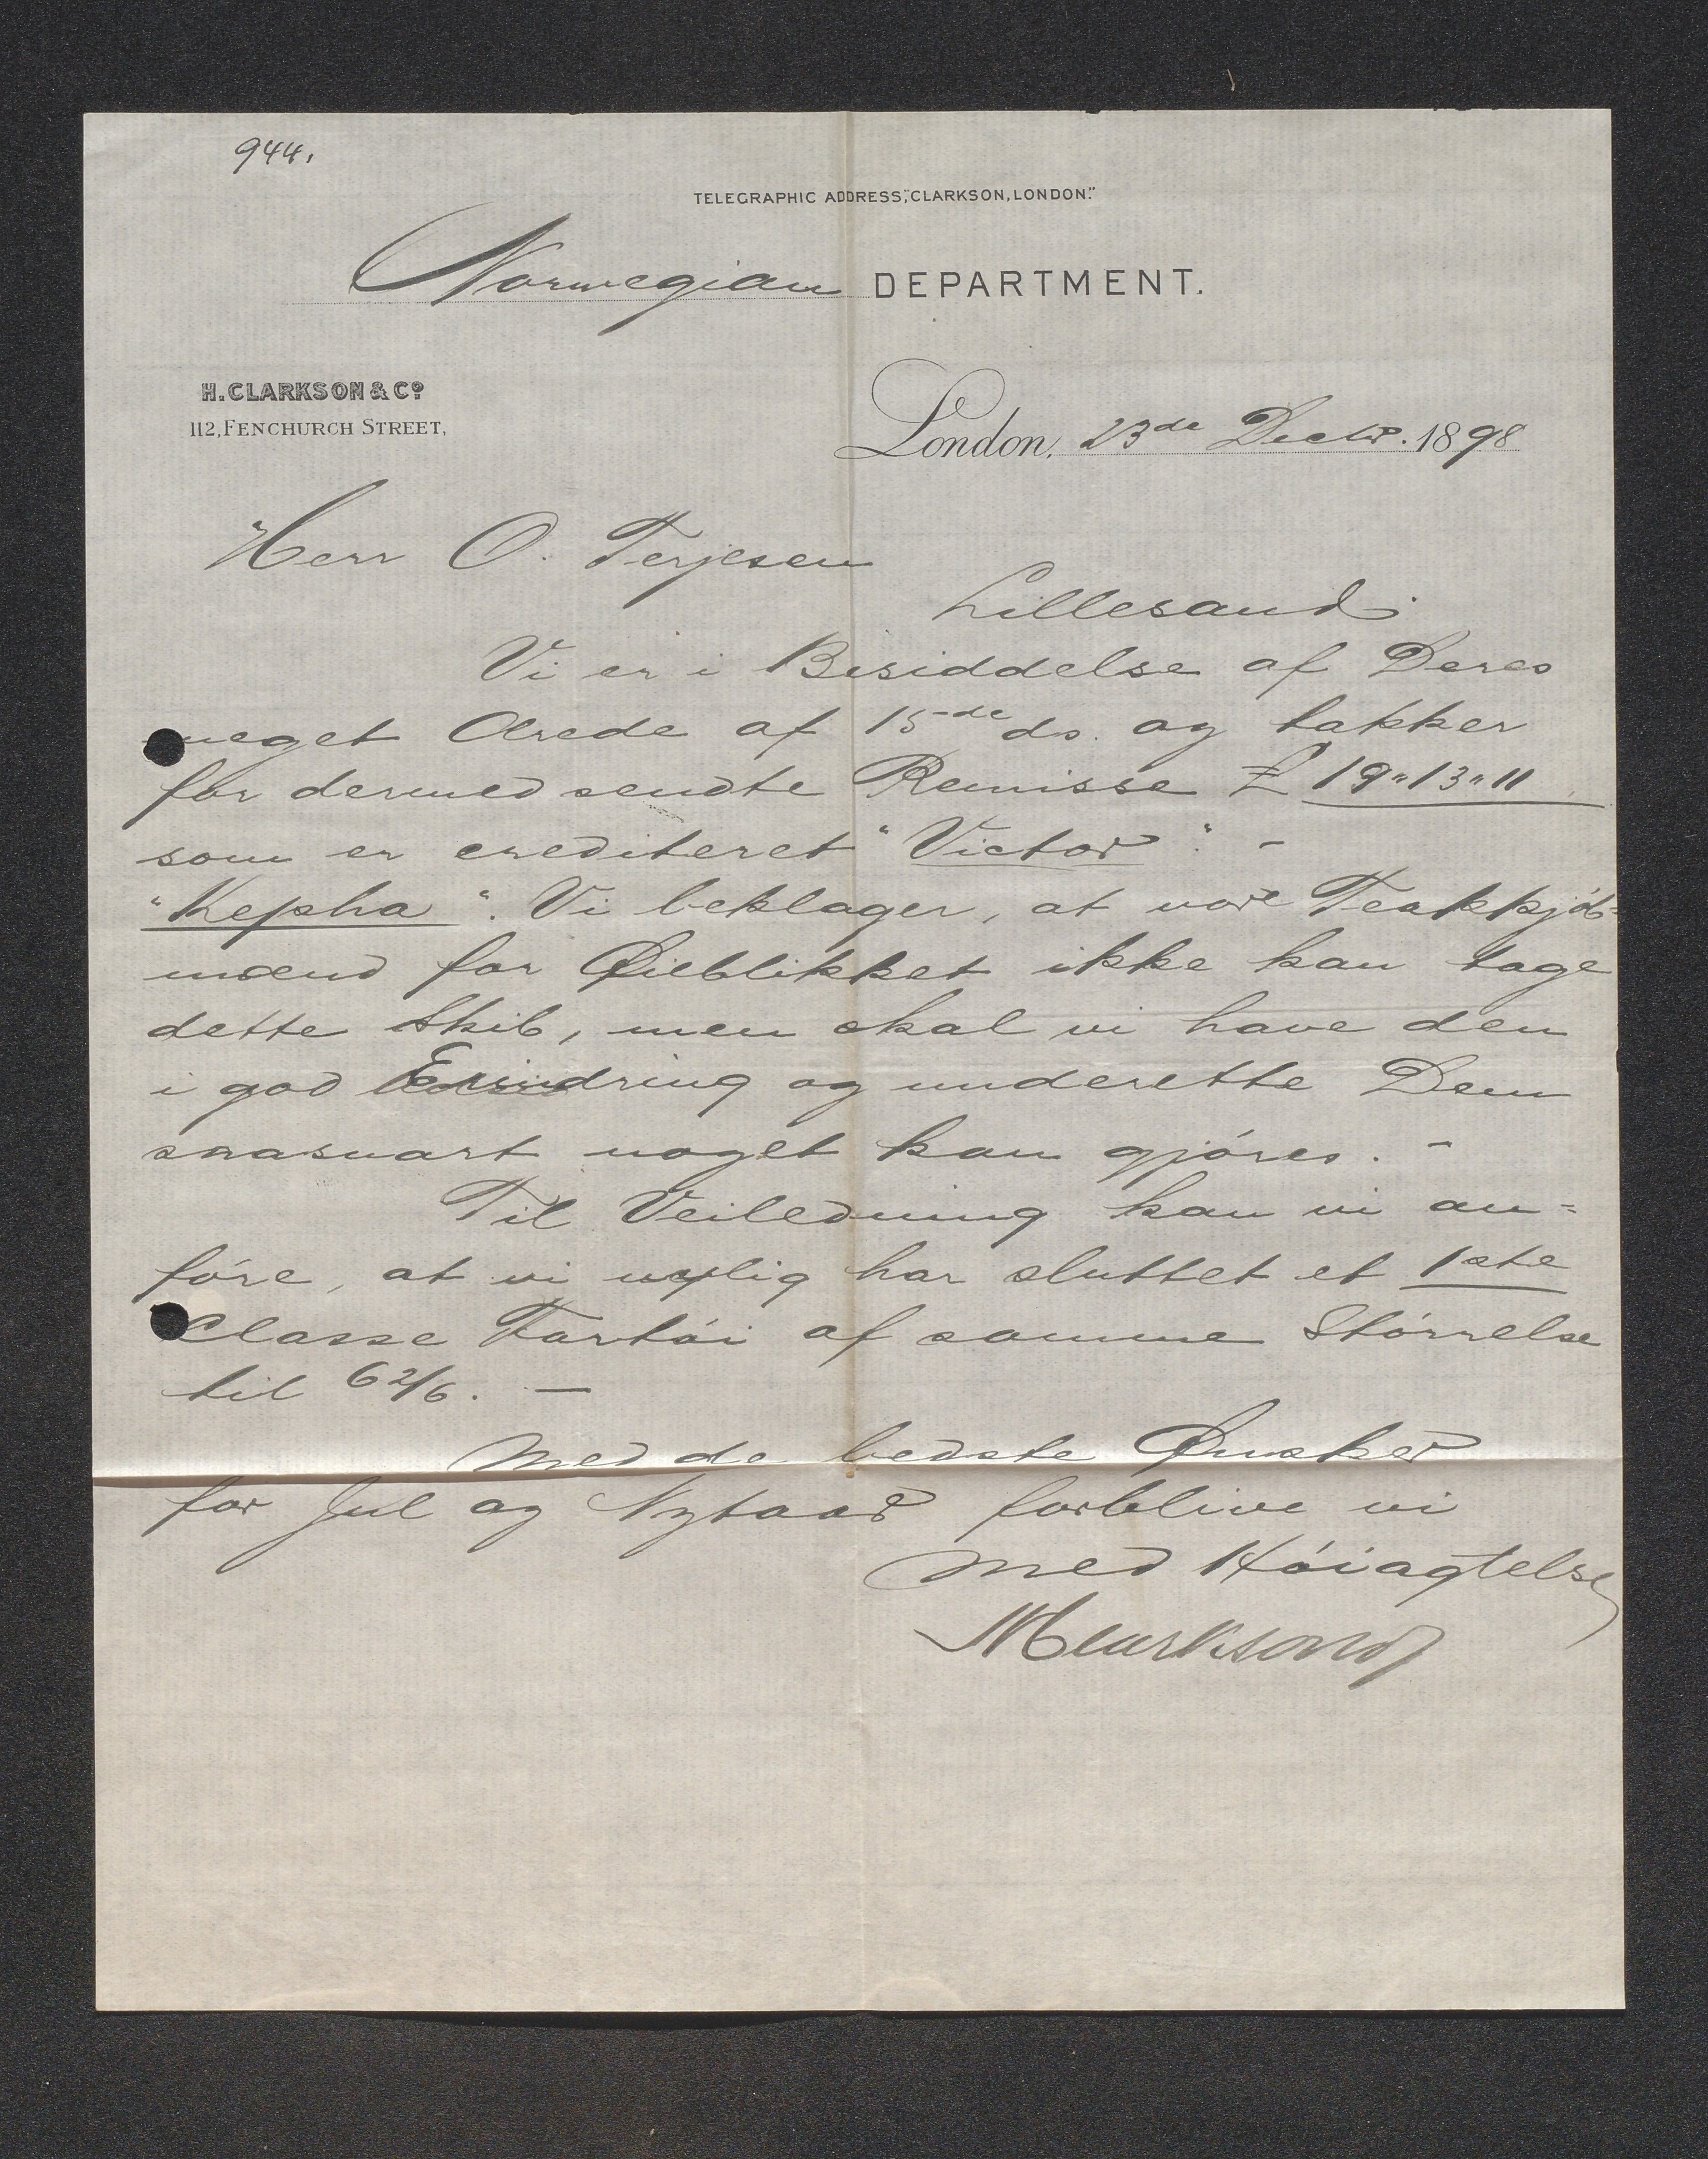 944.
TELEGRAPHIC ADDRESS, "CLARKSON, LONDON."
Norwegian DEPARTMENT.
H. CLARKSON & Co.
112, FENCHURCH STREET,
London, 23de Decbr. 1898
Herr O. Terjesen
Lillesand.
Vi er i Besiddelse af Deres
meget Ærede af 15de ds. og takker
for dermed sendte Remisse £ 19"13"11
som er crediteret "Victor". -
"Kepha". Vi beklager, at vore Teakkjøb=
mænd for Øieblikket ikke kan tage
dette Skib, men skal vi have den
i god Erindring og underette Dem
snasnart noget kan gjóres. -
Til Veiledning kan vi an=
fóre, at vi nylig har sluttet et 1ste
Classe Fartói af samme Stórrelse
til 62/6. —
Med de bedste Ønsker
for Jul og Nytaar forblive vi
Med Hóiagtelse
HClarkson&Co